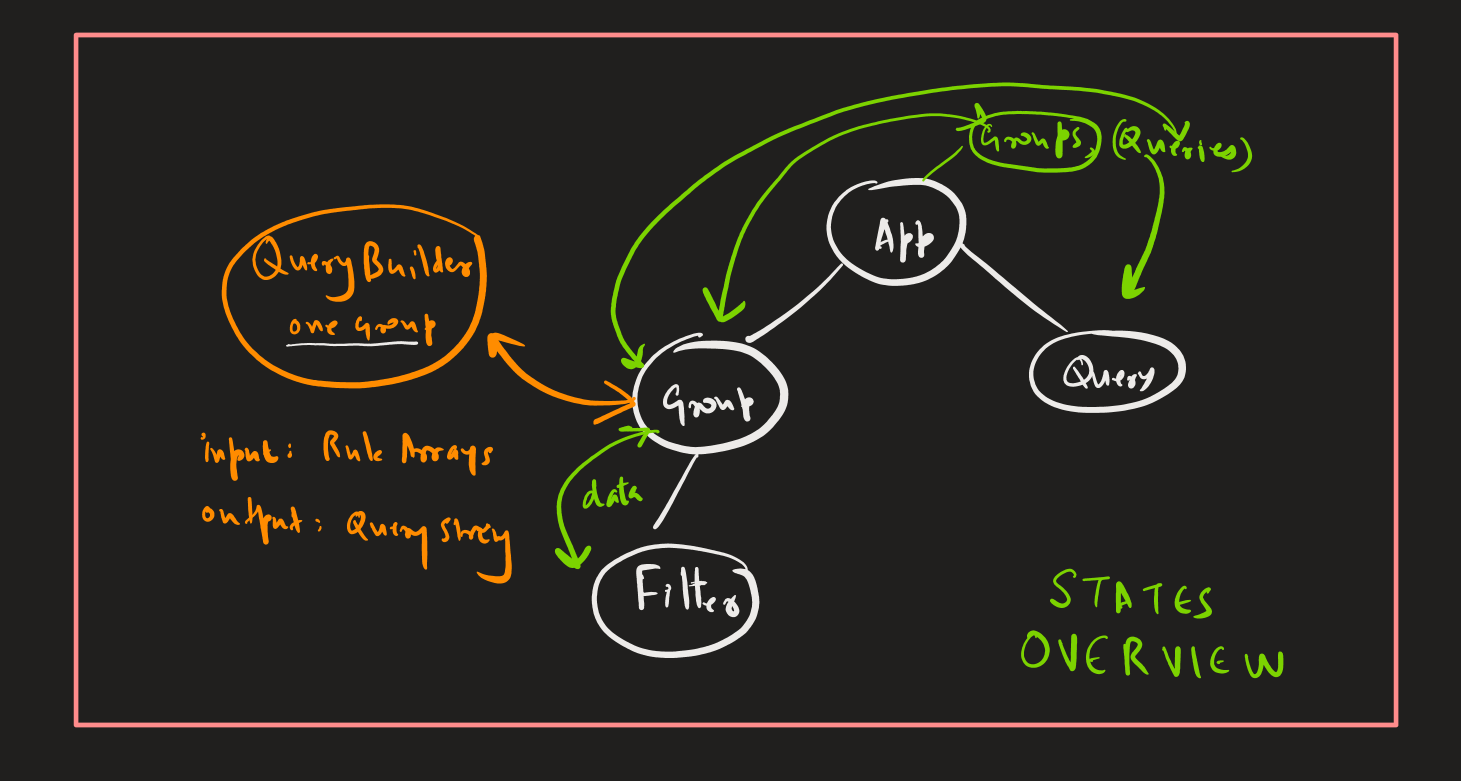 Groups, (Queries)
App
QueryBuilder
one group
Group
Query
input: Rule Arrays
data
output: Query String
Filter
STATES
OVERVIEW